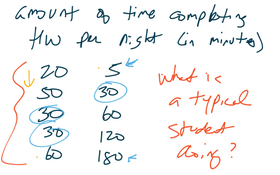 amount of time completing
HW per night (in minutes)
20 5
50 30
30 60
30 120
60 180
What is
a typical
student
doing?